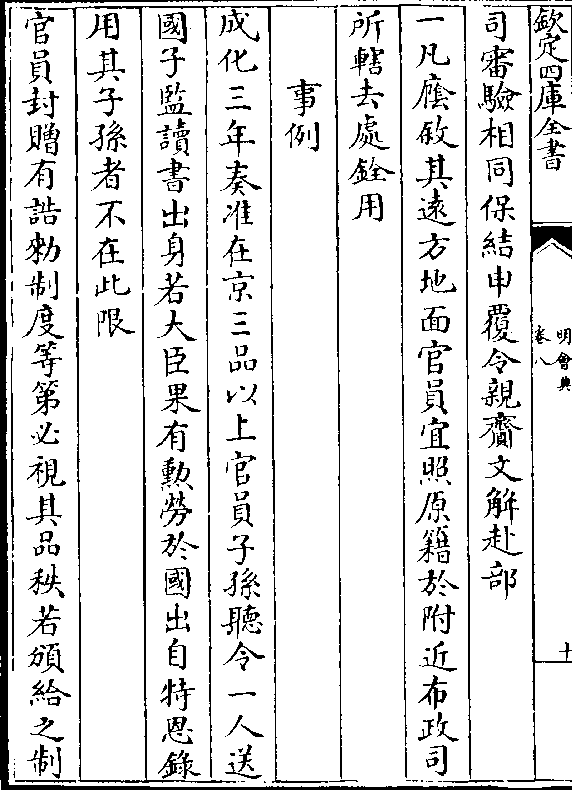 欽定四庫全書
明會典
卷八
十
司審驗相同保結申覆令親齎文解赴部
一凡廕敘其遠方地面官員宜照原籍於附近布政司
所轄去處銓用
事例
成化三年奏准在京三品以上官員子孫聽令一人送
國子監讀書出身若大臣果有勲勞於國出自特恩錄
用其子孫者不在此限
官員封贈有誥勅制度等第必視其品秩若頒給之制